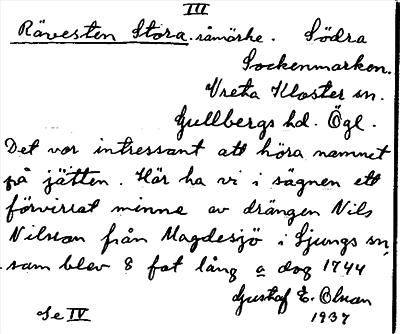 III
Rävesten Stora. råmärke. Södra
Sockenmarken.
Vreta Kloster sn.
Gullbergs hd. Ögl.
Det var intressant att höra namnet
på jätten. Här ha vi i sägnen ett
förvirrat minne av drängen Nils
Nilsson från Magdesjö i Ljungs sn,
som blev 8 fot lång o dog 1744
Gustaf E. Olsson
Se IV 1937